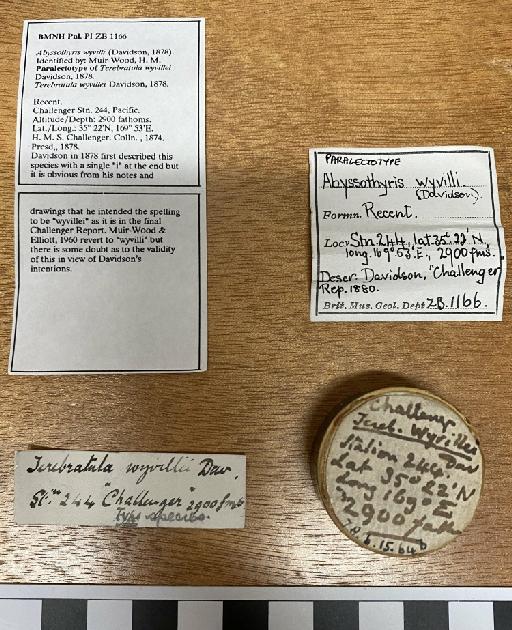 BMNH Pal. PI ZB 1166
Abyssothyris wyvilli (Davidson, 1878)
Identified by: Muir-Wood, H. M.
Paralectotype of Terebratula wyvillei
Davidson, 1878.
Terebratula wyvillei Davidson, 1878.
Recent.
Challenger Stn. 244, Pacific.
Altitude/Depth: 2900 fathoms.
Lat./Long.: 35° 22'N, 169° 53'E.
H. M. S. Challenger. Colln. , 1874.
Presd., 1878.
Davidson in 1878 first described this
species with a single "i" at the end but
it is obvious from his notes and
drawings that he intended the spelling
to be "wyvillei" as it is in the final
Challenger Report. Muir-Wood &
Elliott, 1960 revert to "wyvilli" but
there is some doubt as to the validity
of this in view of Davidson's
intentions.
PARALECTOTYPE
Abyssothyris wyvilli
(Davidson).
Formn. Recent.
Locy Stn. 244, lat. 35° 22' N,
long. 169° 53' E., 2900 fms.
Descr. Davidson, "Challenger
Rep. 1880.
Brit. Mus. Geol. Dept ZB.1166.
Terebratula wyvillii Dav.
Stn 244 "Challenger" 2900 fms
Type species.
Challeng
Tereb. Wyvillei
Dav
Station 244
Lat 35° 22'N
Long 169° E
in
2900 fath